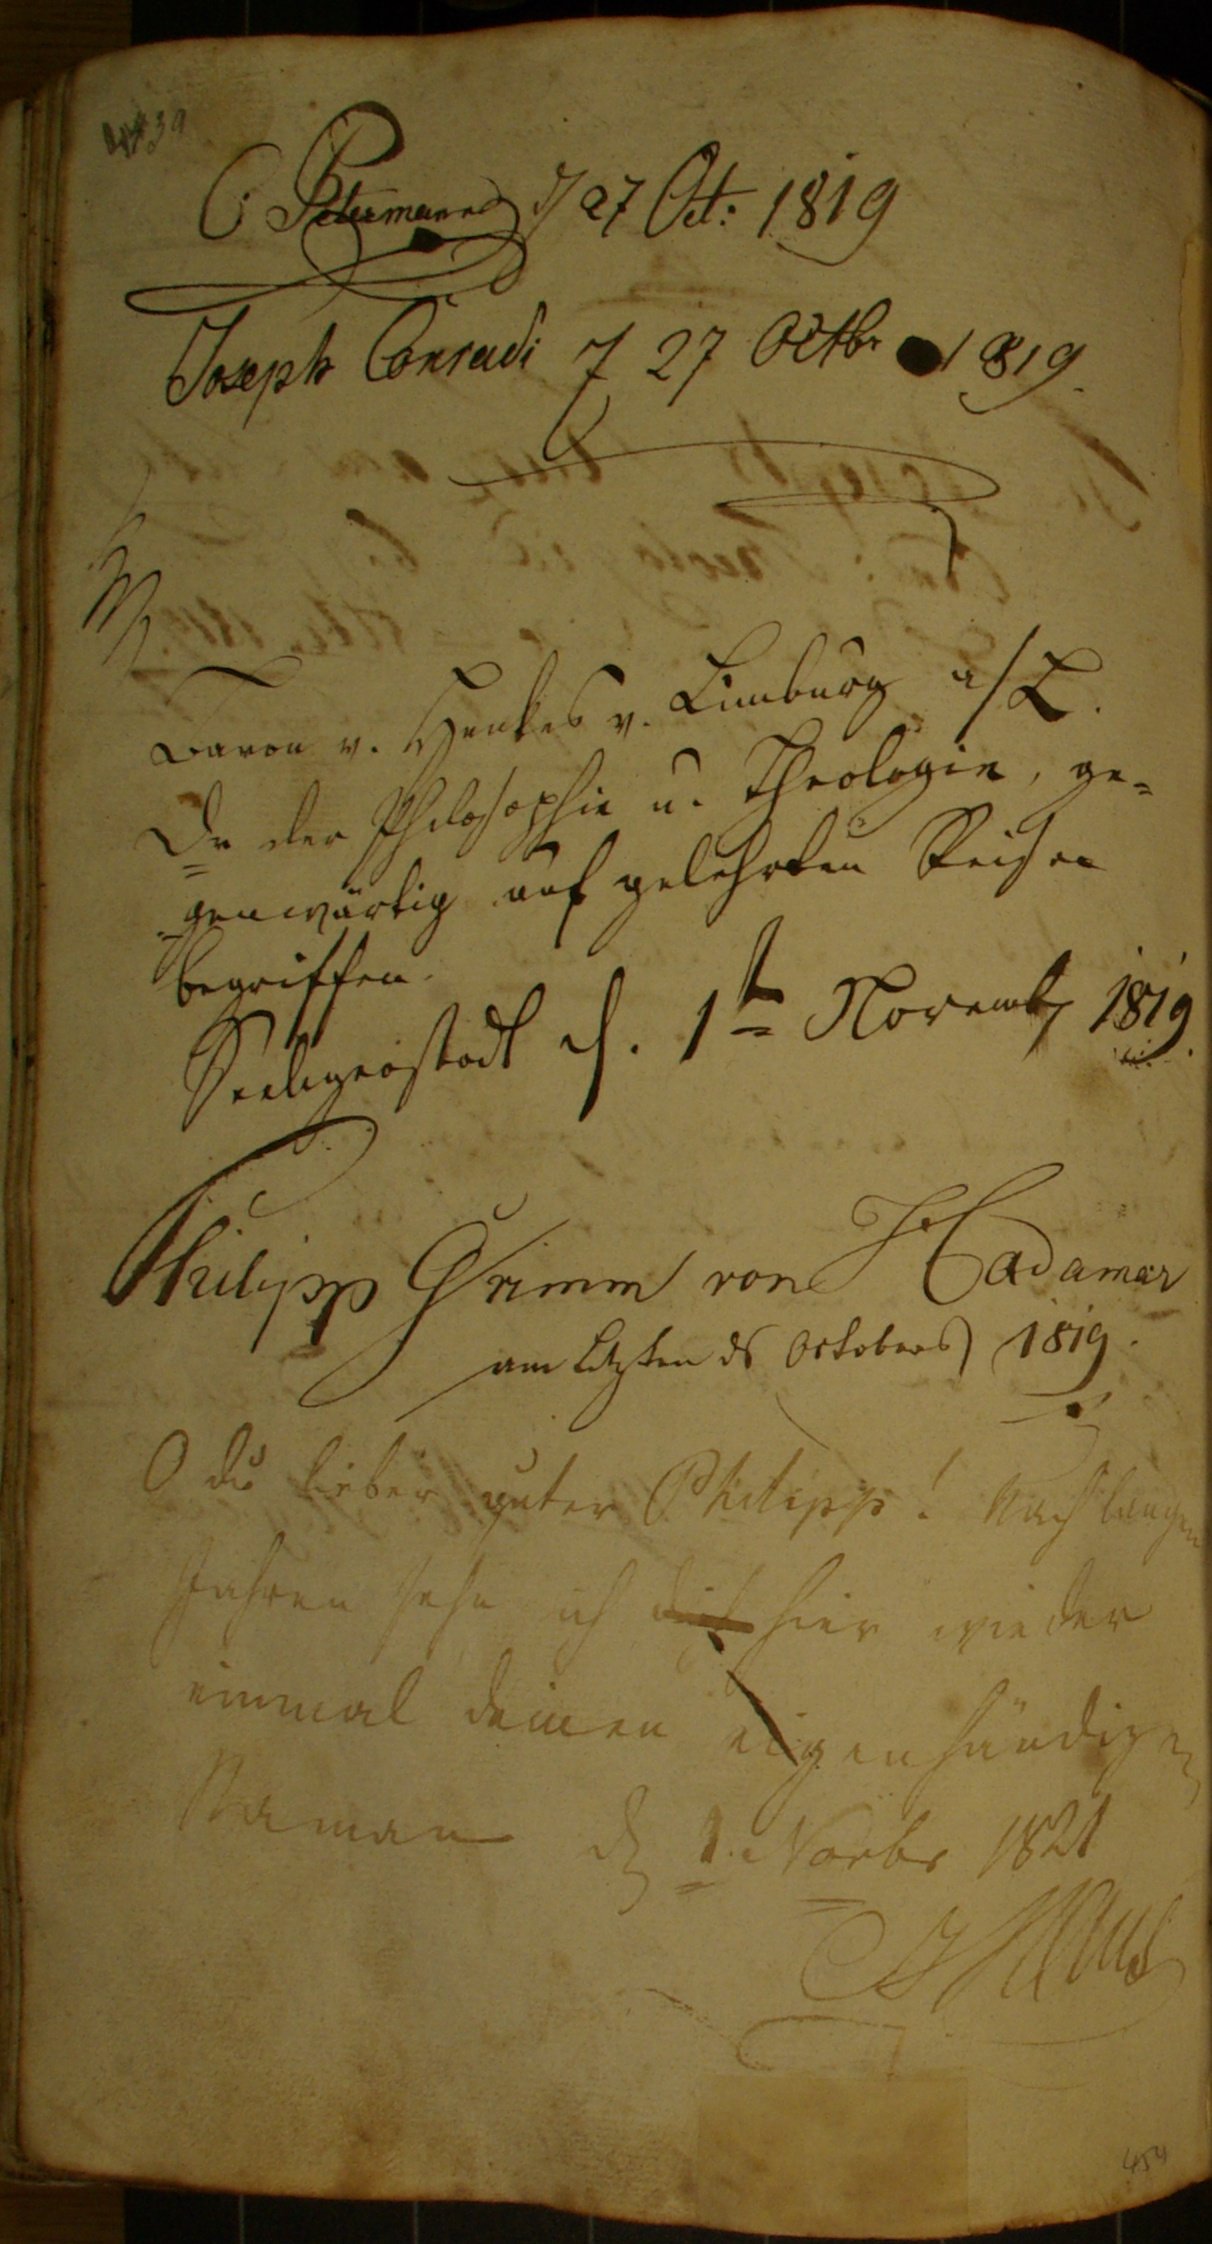 439
C. Petermann d 27 Oct: 1819
Joseph Conradi d 27 Octbr 1819.
Baron v. Henkes v. Limburg a/L.
Dr der Philosophie u. Theologie, ge-
genwärtig auf gelehrten Reisen
begriffen.
Seeligenstadt d. 1ten Novemb 1819.
Philipp Grimm von Hadamar
am letzten ds Octobers 1819.
O du lieber guter Philipp! Nach langen
Jahren sehe ich dich hier wieder
einmal deinen eigenhändigen
Namen d 1. Novbr 1821
454